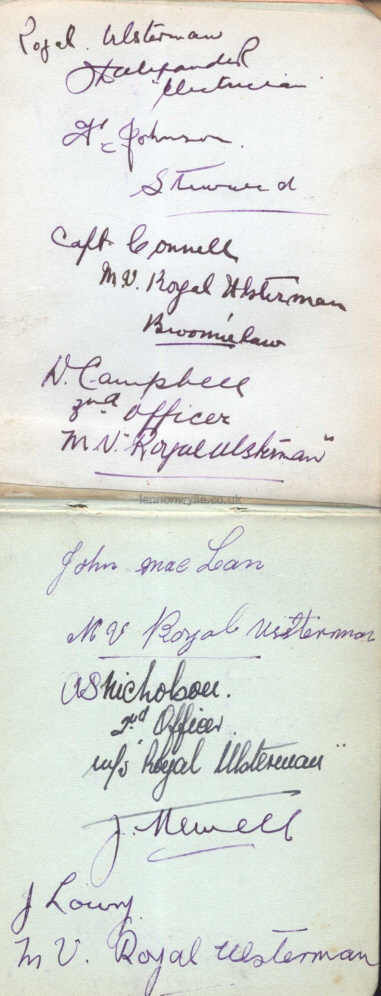 Royal. Ulsterman
Alexander
Electrician
Johnson.
Steward
Capt Connell
M.V. Royal Ulsterman
Broomielaw
D. Campbell
2nd Officer
M.V. "Royal Ulsterman"
lennonwylie.co.uk
John mac Lean
MV Royal Ulsterman
AS Nicholson.
2nd Officer.
m/s "Royal Ulsterman"
J. Newell
J Lowry.
M V. Royal Ulsterman